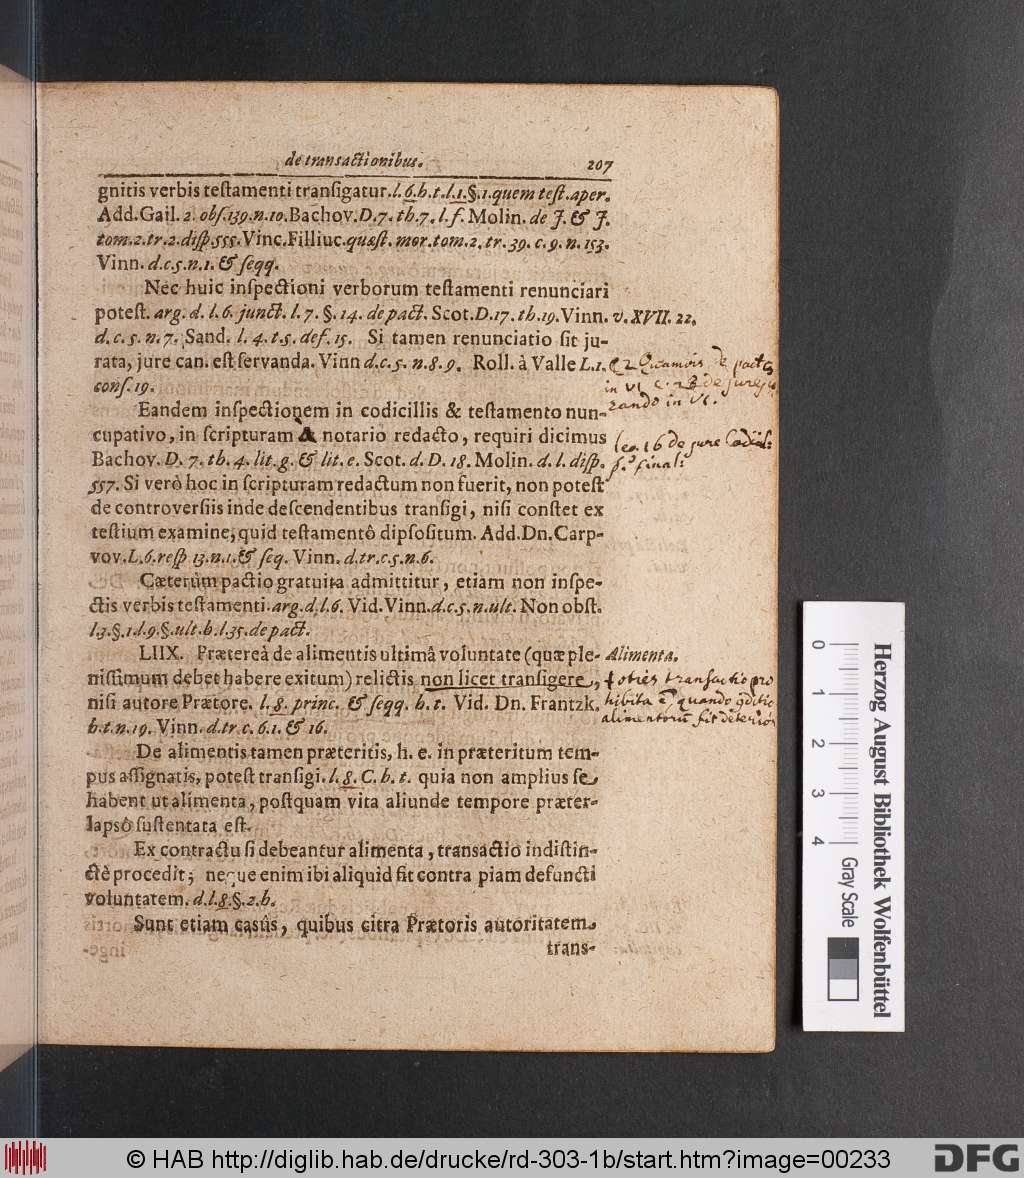 de transactionibus. 207
gnitis verbis testamenti transigatur. l. 6. h. t. l. 1. §. 1. quem test. aper.
Add. Gail. 2. obs. 139. n. 10. Bachov. D. 7. th. 7. l. f. Molin. de J. & J.
tom. 2. tr. 2. disp. 555. Vinc. Filliuc. quæst. mor. tom. 2. tr. 39. c. 9. n. 153.
Vinn. d. c. 5. n. 1. & seqq.
Nec huic inspectioni verborum testamenti renunciari
potest. arg. d. l. 6. junct. l. 7. §. 14. de pact. Scot. D. 17. th. 19. Vinn. v. XVII. 22.
d. c. 5. n. 7. Sand. l. 4. t. 5. def. 15. Si tamen renunciatio sit ju-
rata, jure can. est servanda. Vinn d. c. 5. n. 8. 9. Roll. à Valle L. 1.
cons. 19.
C 2 Quamvis de pactis
in VI c. 28 de jureju
rando in VI.
Eandem inspectionem in codicillis & testamento nun-
cupativo, in scripturam A notario redacto, requiri dicimus
Bachov. D. 7. th. 4. lit. g. & lit. e. Scot. d. D. 18. Molin. d. l. disp.
557. Si verò hoc in scripturam redactum non fuerit, non potest
leg. 16 de jure Codicil:
final:
de controversiis inde descendentibus transigi, nisi constet ex
testium examine, quid testamentô dipsositum. Add. Dn. Carp-
vov. L. 6. resp 13. n. 1. & seq. Vinn. d. tr. c. 5. n. 6.
Cæterùm pactio gratuita admittitur, etiam non inspe-
ctis verbis testamenti. arg. d. l. 6. Vid. Vinn. d. c. 5. n. ult. Non obst.
l. 3. §. 1 d. 9. §. ult. b. l. 35. de pact.
LIIX. Prætereà de alimentis ultimâ voluntate (quæ ple- Alimenta.
nissimum debet habere exitum) relictis non licet transigere,
nisi autore Prætore. l. 8. princ. & seqq. h. t. Vid. Dn. Frantzk.
h. t. n. 19. Vinn. d. tr c. 6. 1. & 16.
toties transactio pro
hibita ē, quando conditio
alimentorum fit deterior
De alimentis tamen præteritis, h. e. in præteritum tem-
pus assignatis, potest transigi. l. 8. C. h. t. quia non amplius se
habent ut alimenta, postquam vita aliunde tempore præter-
lapsô sustentata est.
Ex contractu si debeantur alimenta, transactio indistin-
ctè procedit; neque enim ibi aliquid fit contra piam defuncti
voluntatem. d. l. 8. §. 2. h.
Sunt etiam casûs, quibus citra Prætoris autoritatem
trans-
0 1 2 3 4
Gray Scale
Herzog August Bibliothek Wolfenbüttel
© HAB http://diglib.hab.de/drucke/rd-303-1b/start.htm?image=00233
DFG